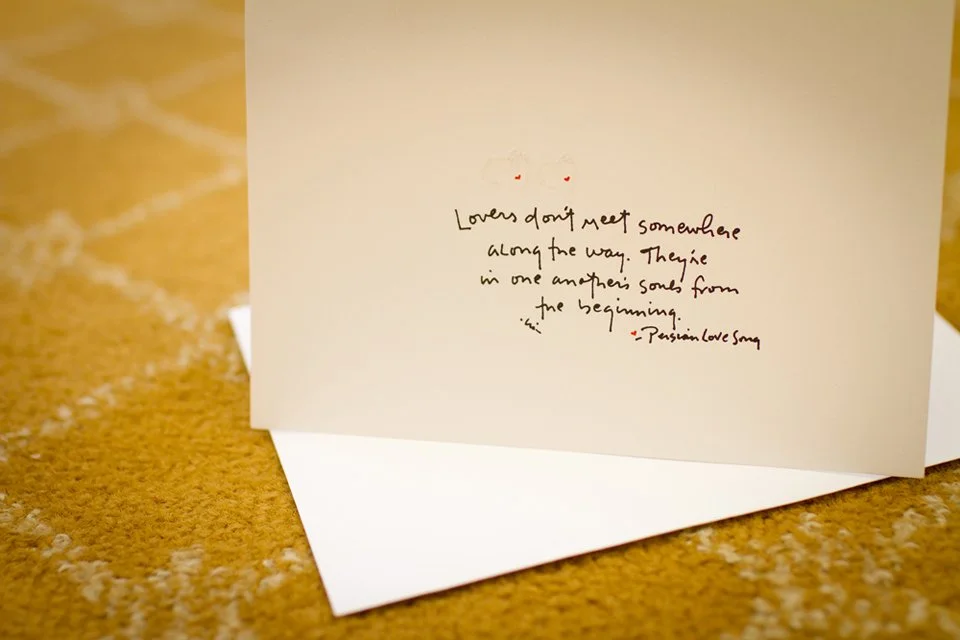 Lovers don't meet somewhere
along the way. They're
in one another's souls from
the beginning.
- Persian Love Song